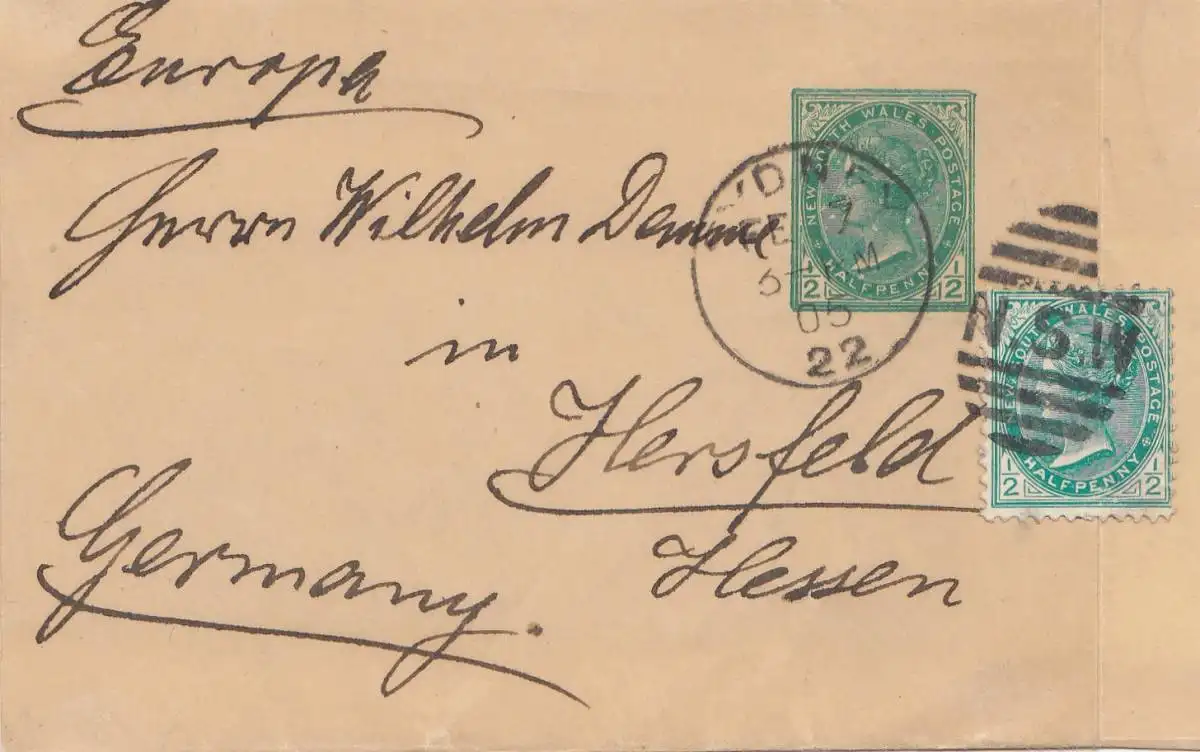 Europa
Herrn Wilhelm Demme
in
Hersfeld
Hessen
Germany.
NEW SOUTH WALES POSTAGE
HALFPENNY
1/2 1/2
7
05
22
N.S.W
NEW SOUTH WALES POSTAGE
HALFPENNY
1/2 1/2